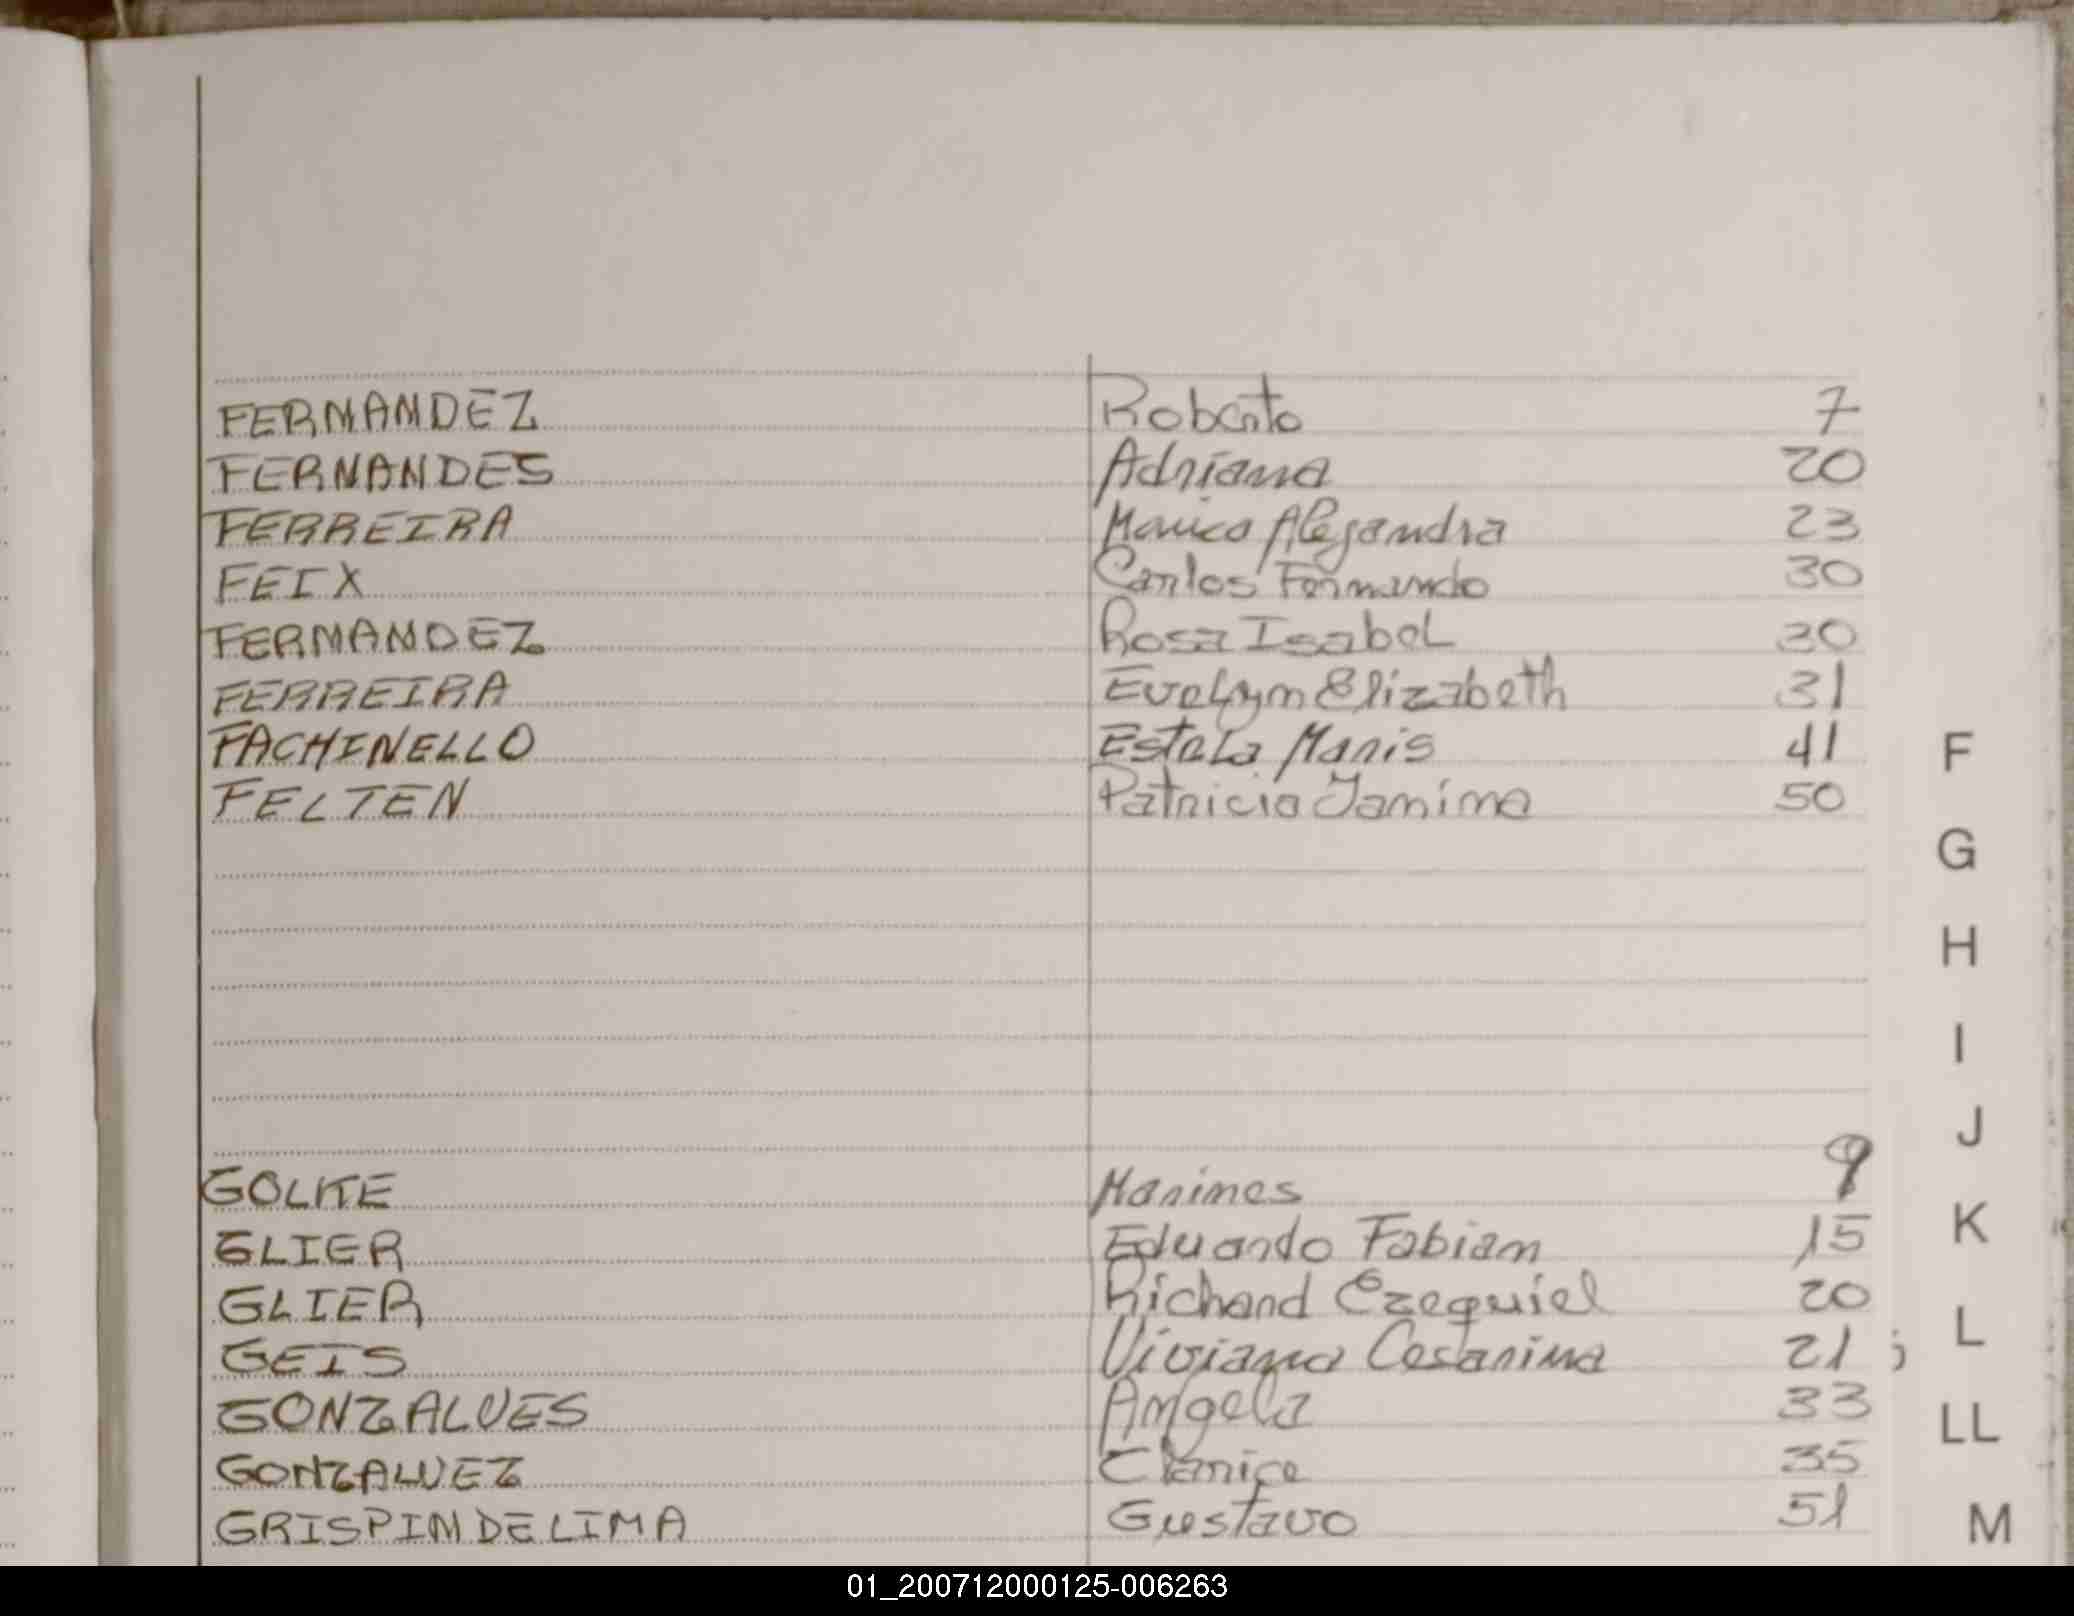 FERNANDEZ Roberto 7
FERNANDES Adriana 20
FERREIRA Monica Alejandra 23
FEIX Carlos Fernando 30
FERNANDEZ Rosa Isabel 30
FERREIRA Evelyn Elizabeth 31
FACHINELLO Estela Maris 41
FELTEN Patricia Jamima 50
GOLKE Marines 9
GLIER Eduardo Fabian 15
GLIER Richard Ezequiel 20
GEIS Viviana Cesarina 21
GONZALVES Angela 33
GONZALVEZ Clarice 35
GRISPIN DE LIMA Gustavo 51
F
G
H
I
J
K
L
LL
M
01_200712000125-006263